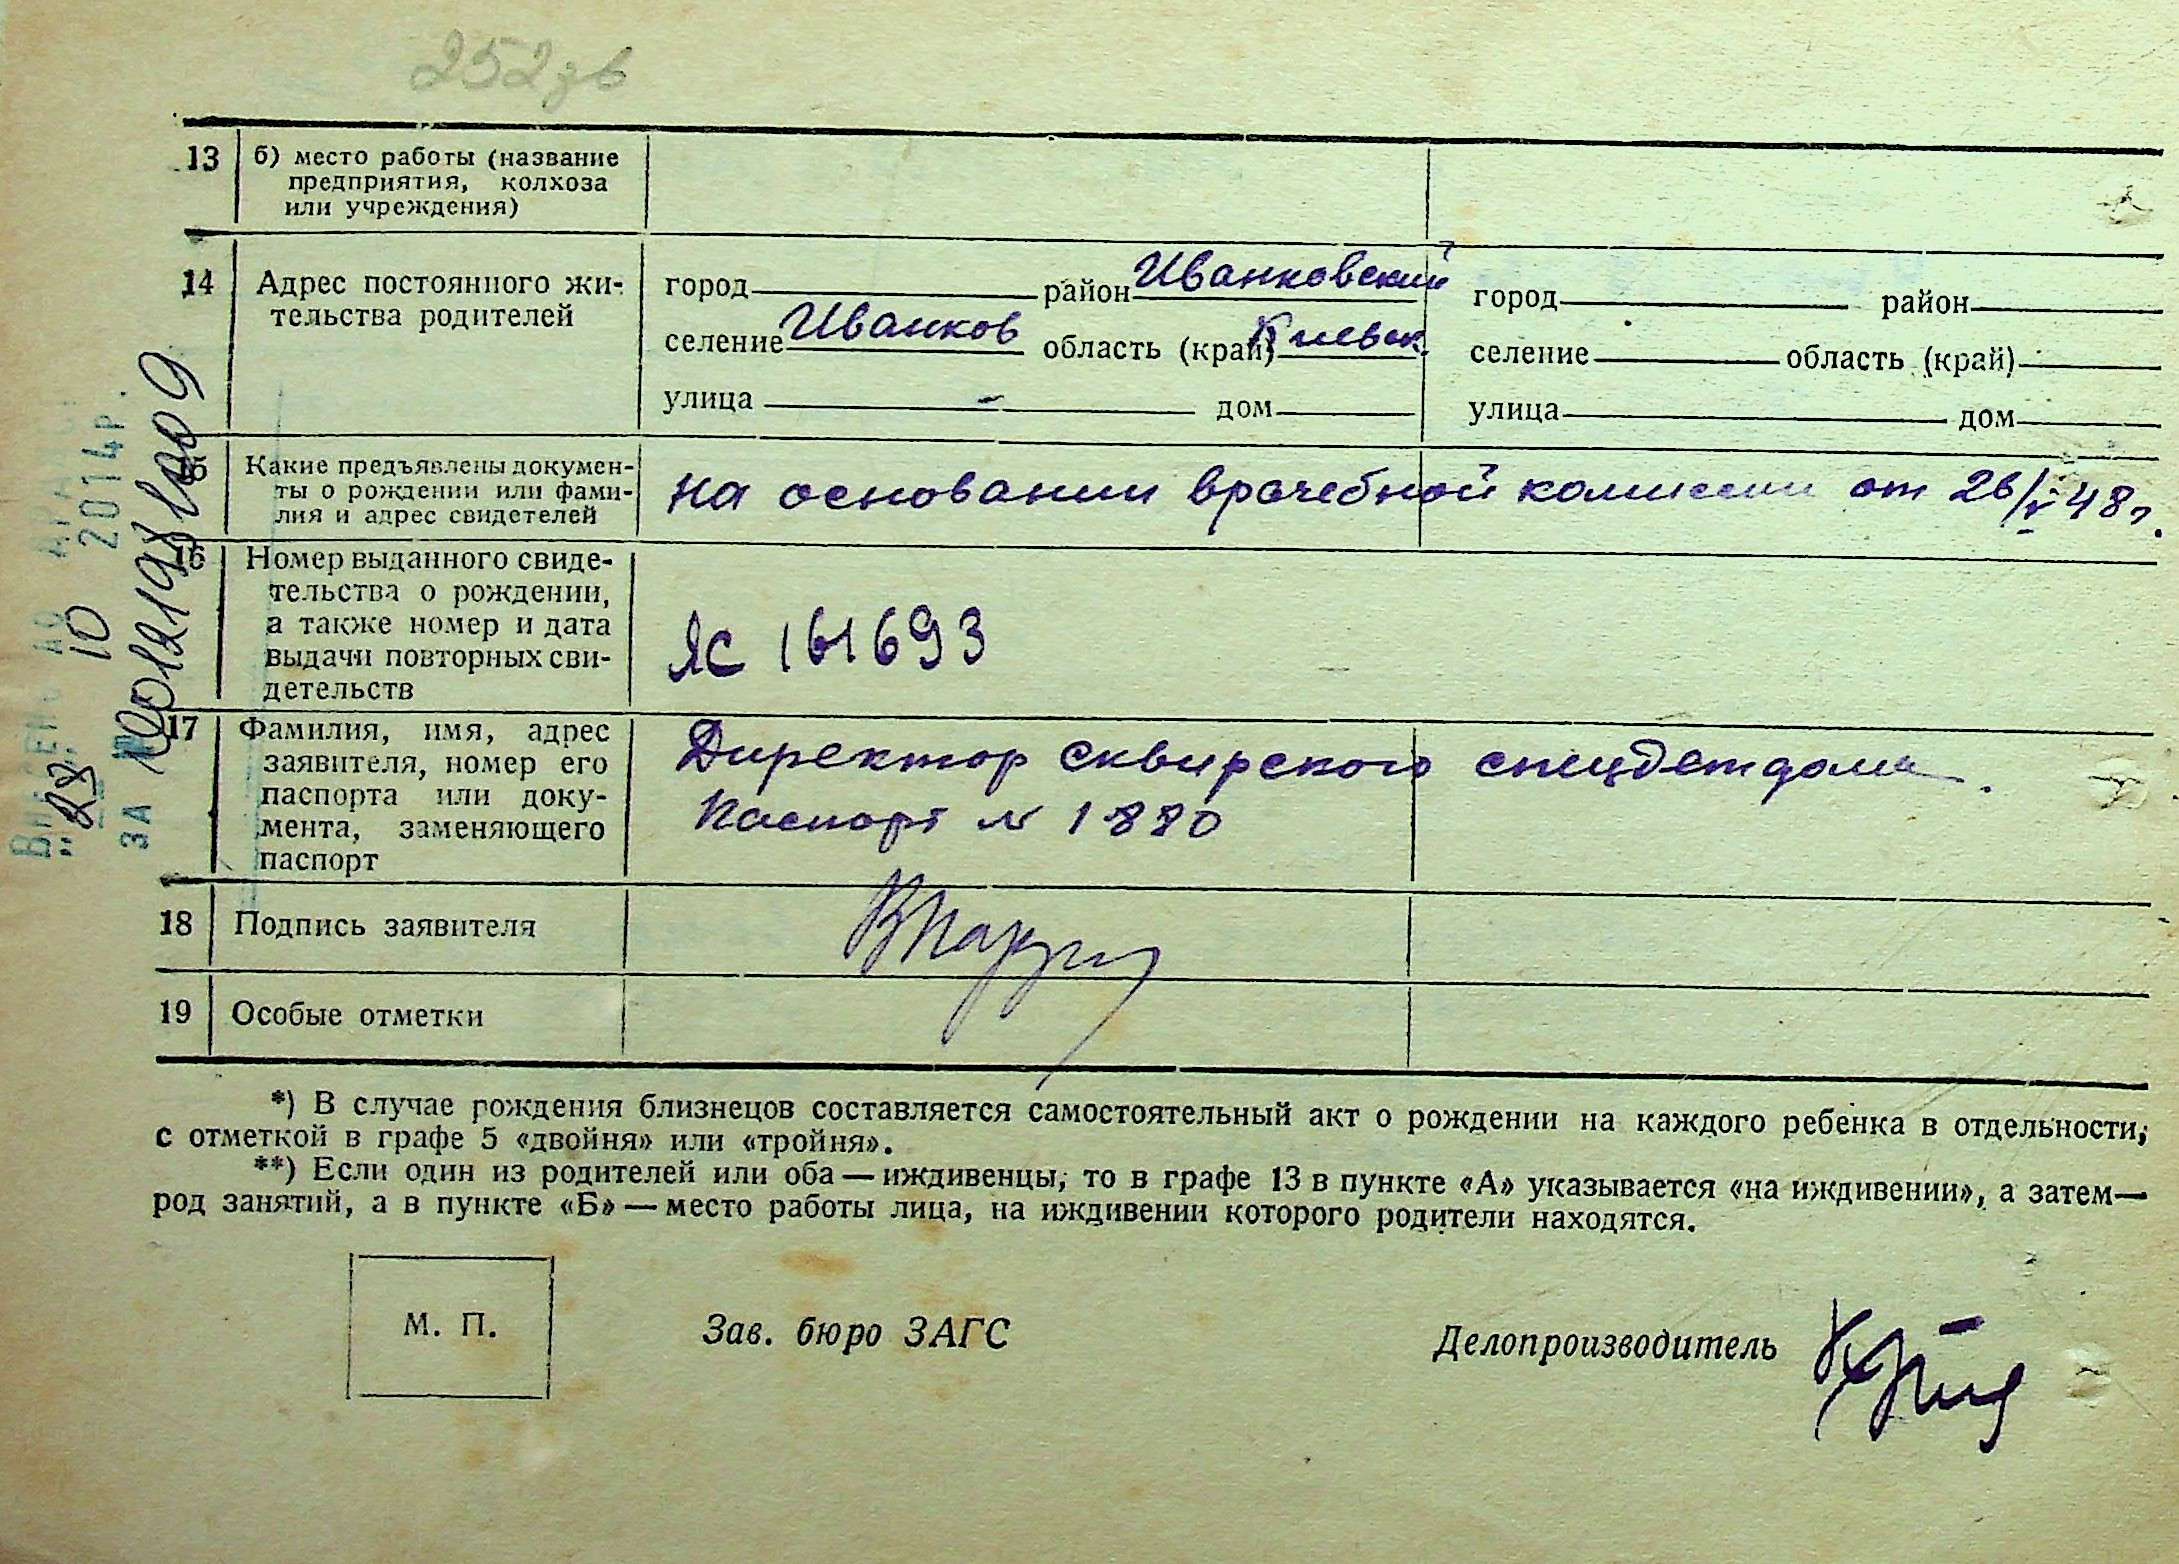 252зв
13 б) место работы (название
предприятия, колхоза
или учреждения)
14 Адрес постоянного жи-
тельства родителей
город район Иванковский
селение Иванков область (край) Киевск.
улица - дом
город район
селение область (край)
улица дом
15 Какие предъявлены докумен-
ты о рождении или фами-
лия и адрес свидетелей
На основании врачебной комиссии от 26/V 48 г.
16 Номер выданного свиде-
тельства о рождении,
а также номер и дата
выдачи повторных сви-
детельств
ЯС 161693
17 Фамилия, имя, адрес
заявителя, номер его
паспорта или доку-
мента, заменяющего
паспорт
Директор сквирского спецдетдома.
Паспорт № 1880
18 Подпись заявителя
19 Особые отметки
*) В случае рождения близнецов составляется самостоятельный акт о рождении на каждого ребенка в отдельности,
с отметкой в графе 5 «двойня» или «тройня».
**) Если один из родителей или оба — иждивенцы, то в графе 13 в пункте «А» указывается «на иждивении», а затем—
род занятий, а в пункте «Б» — место работы лица, на иждивении которого родители находятся.
М. П.
Зав. бюро ЗАГС
Делопроизводитель
"23" 10 2014р.
ЗА №